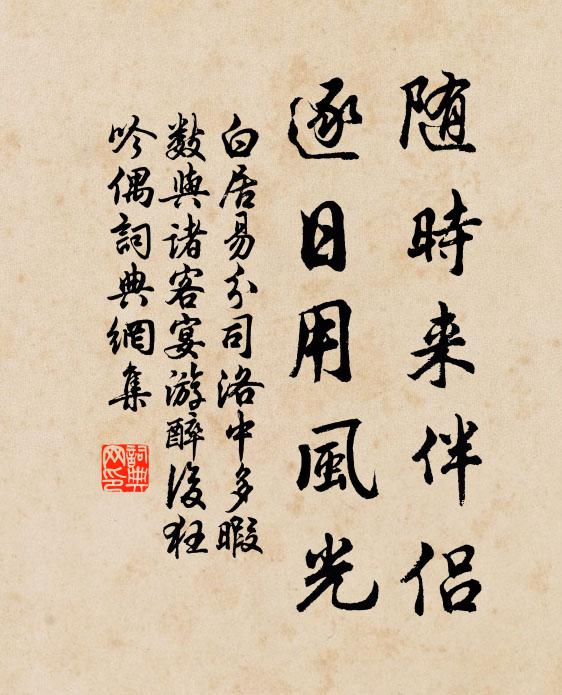 随時来伴侣
逐日用風光
白居易分司洛中多暇
数與诸客宴游醉後狂
吟偶詞典網集
詞典
网印